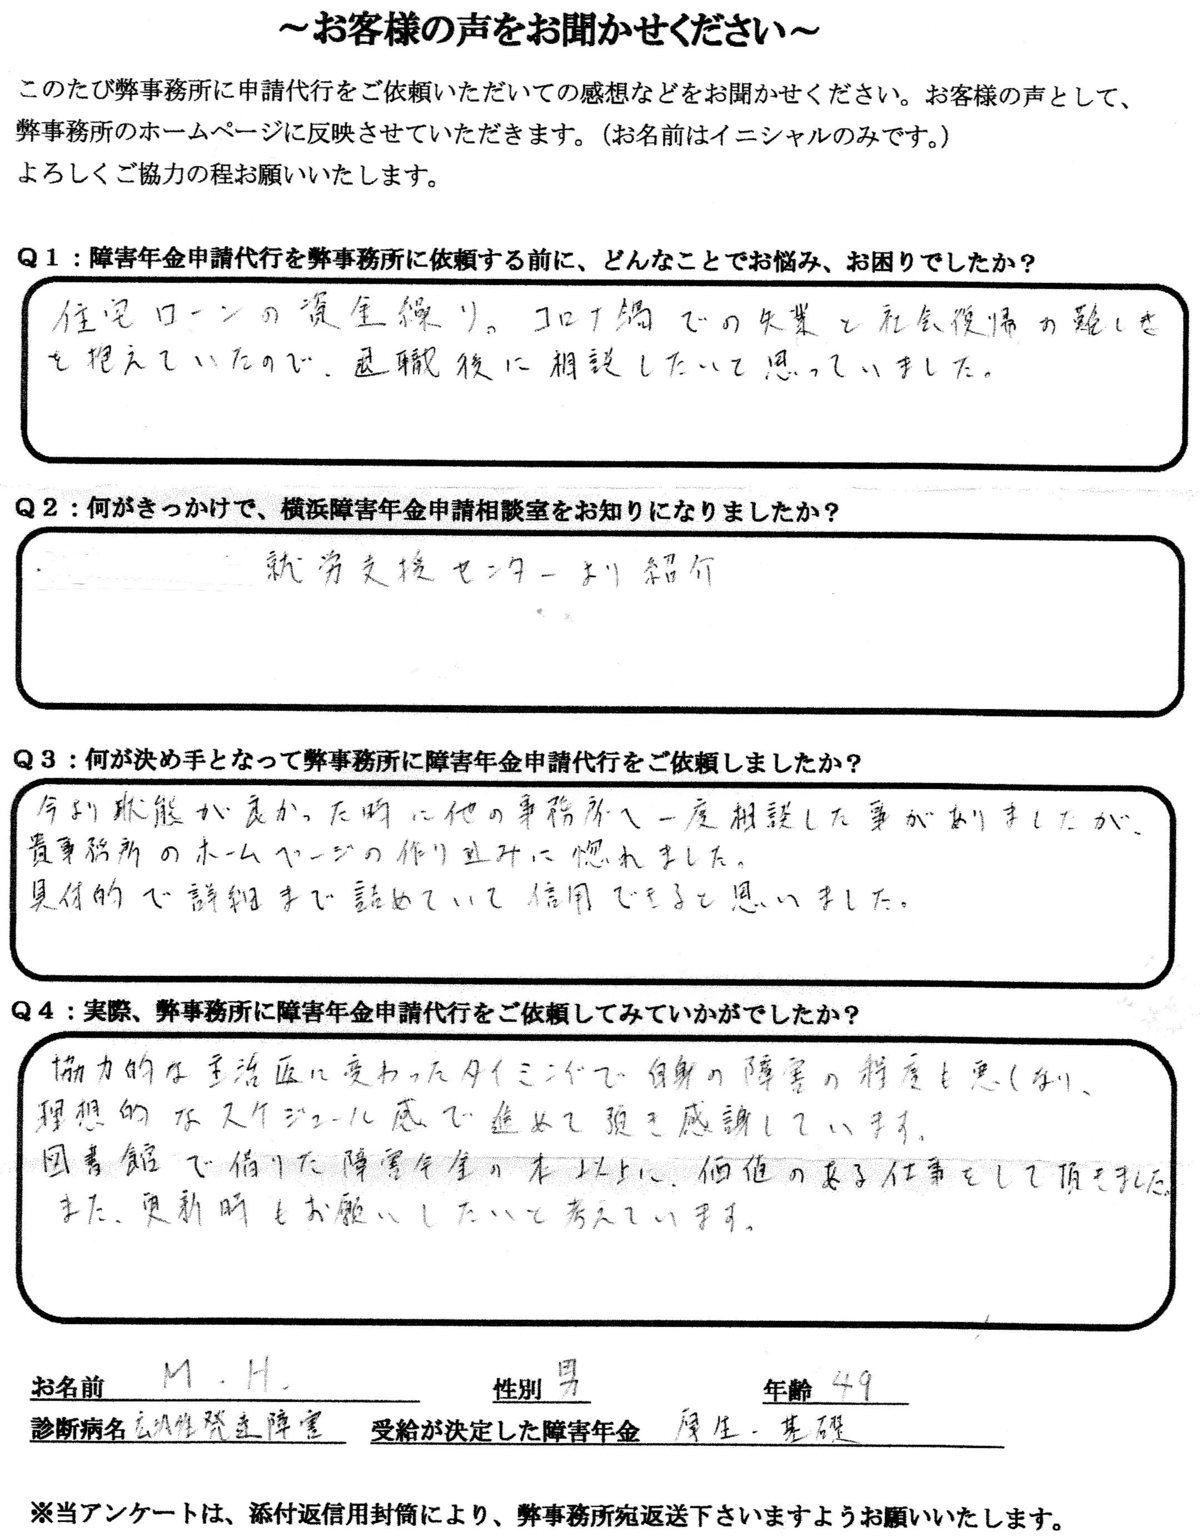 ～お客様の声をお聞かせください～
このたび弊事務所に申請代行をご依頼いただいての感想などをお聞かせください。お客様の声として、
弊事務所のホームページに反映させていただきます。（お名前はイニシャルのみです。）
よろしくご協力の程お願いいたします。
Ｑ１：障害年金申請代行を弊事務所に依頼する前に、どんなことでお悩み、お困りでしたか？
住宅ローンの資金繰り。コロナ禍での失業と社会復帰の難しさ
を抱えていたので、退職後に相談したいと思っていました。
Ｑ２：何がきっかけで、横浜障害年金申請相談室をお知りになりましたか？
就労支援センターより紹介
Ｑ３：何が決め手となって弊事務所に障害年金申請代行をご依頼しましたか？
今より状態が良かった時に他の事務所へ一度相談した事がありましたが、
貴事務所のホームページの作り込みに惚れました。
具体的で詳細まで詰めていて信用できると思いました。
Ｑ４：実際、弊事務所に障害年金申請代行をご依頼してみていかがでしたか？
協力的な主治医に変わったタイミングで自身の障害の程度も悪くなり、
理想的なスケジュール感で進めて頂き感謝しています。
図書館で借りた障害年金の本以上に、価値のある仕事をして頂きました。
また、更新時もお願いしたいと考えています。
お名前 M.H. 性別 男 年齢 49
診断病名 広汎性発達障害 受給が決定した障害年金 厚生・基礎
※当アンケートは、添付返信用封筒により、弊事務所宛返送下さいますようお願いいたします。